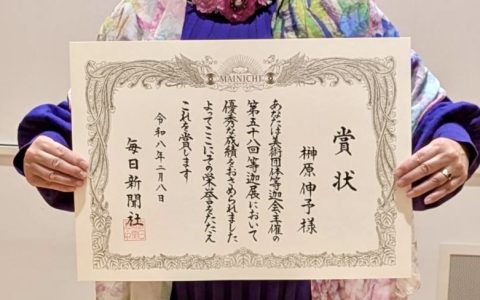 MAINICHI
賞状
榊原伸予様
あなたは美術団体等迦会主催の
第五十八回等迦展において
優秀な成績をおさめられました
よってここにその栄誉をたたえ
これを賞します
令和八年二月八日
毎日新聞社